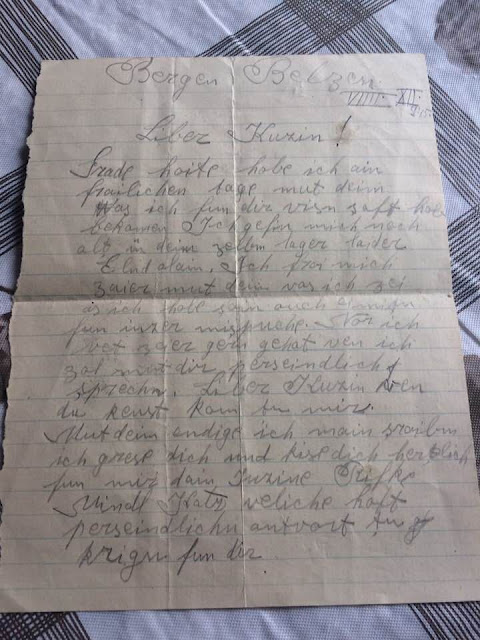 Bergen Belzen
VIIII. XII
Liber Kuzin!
Frade haite habe ich ain
frailichen tage mut deim
was ich fun dir visn zaft hob
bekomen Ich gefin mich noch
alt in deim zelbm lager laider
Elnt alain. Ich froi mich
zaier mut dem vas ich zei
as ich hobe soin auch
fun inzer mispuche. Nor ich
vet zaer gern gehat ven ich
zol mit dir perseindlich
sprechn. Liber Kuzin ven
du kenst kom tu mir.
Mut deim endige ich main sraibm
ich grese dich und kise dich hertzlich
fun mir dain Kuzine Rifke
Mindl Katz veliche hoft
perseindlichn antvort tu
krign fun dir